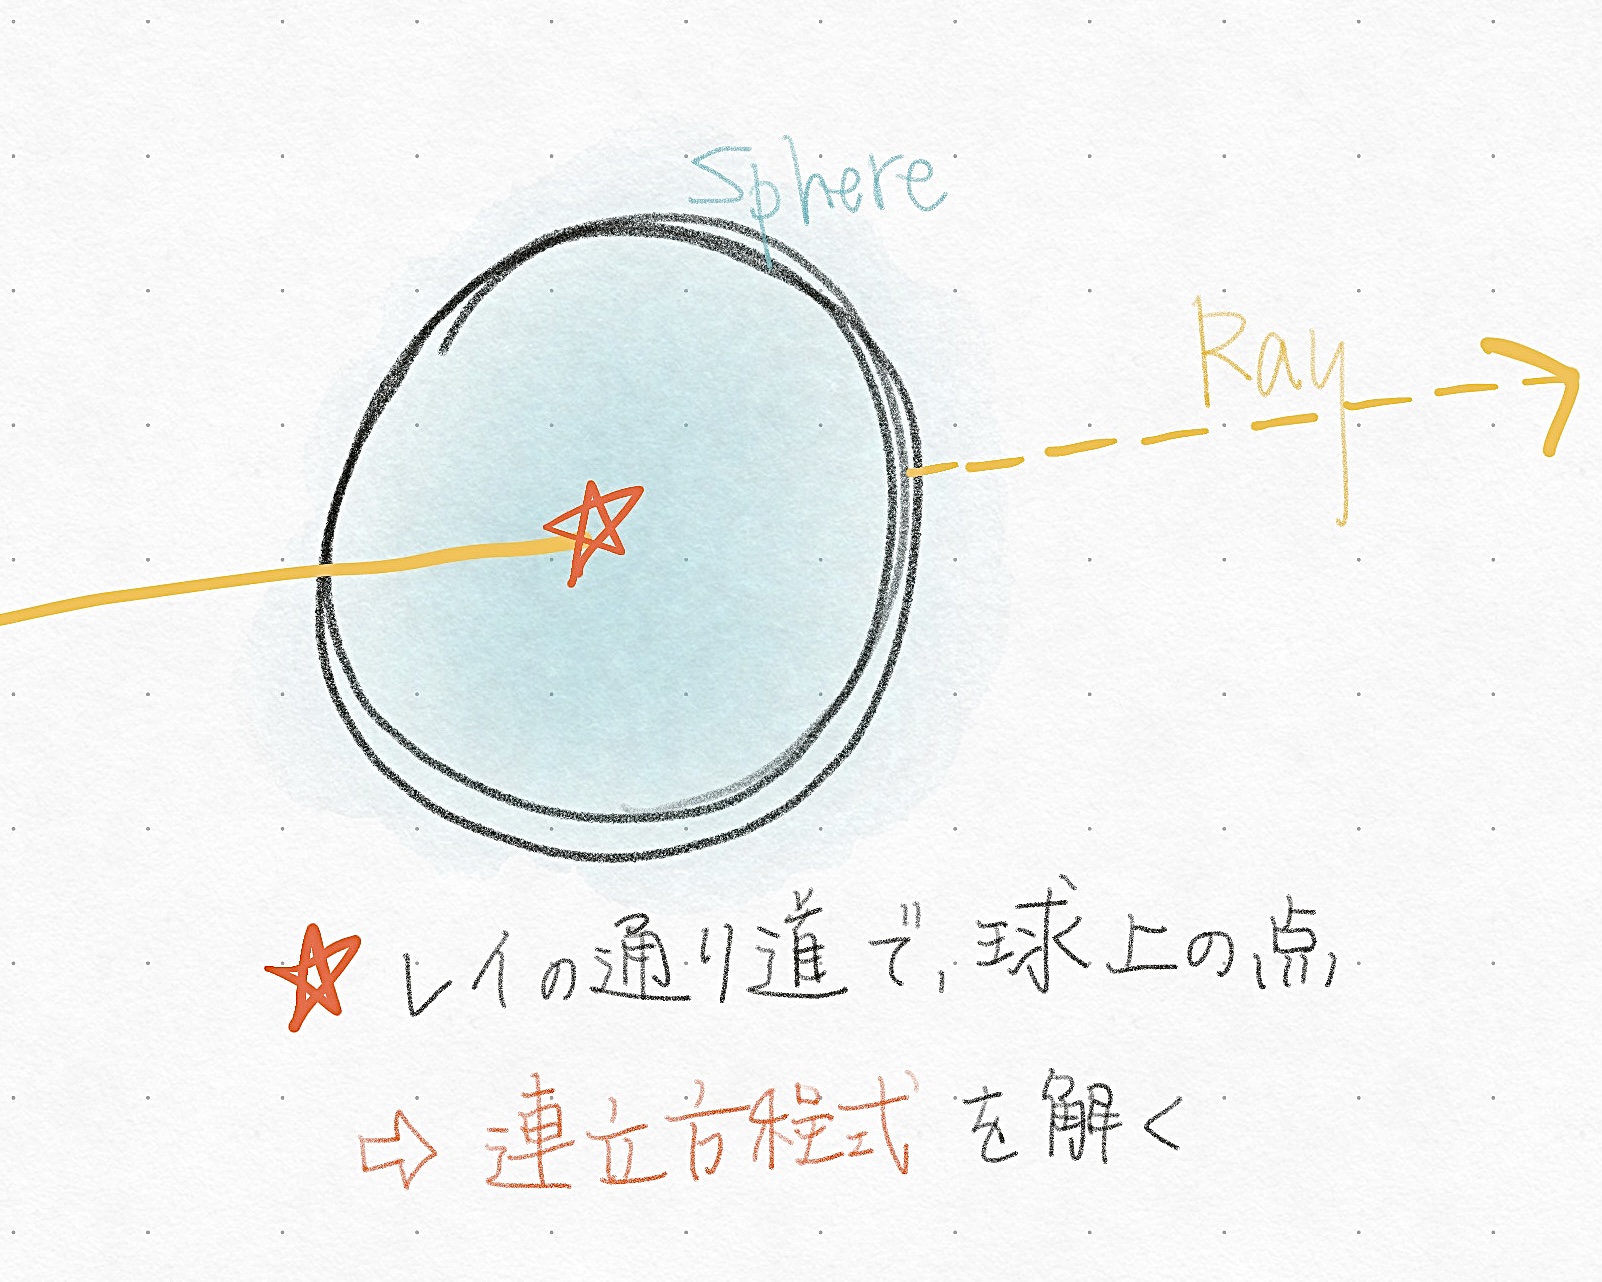 Sphere
Ray
レイの通り道で、球上の点
⇨ 連立方程式を解く